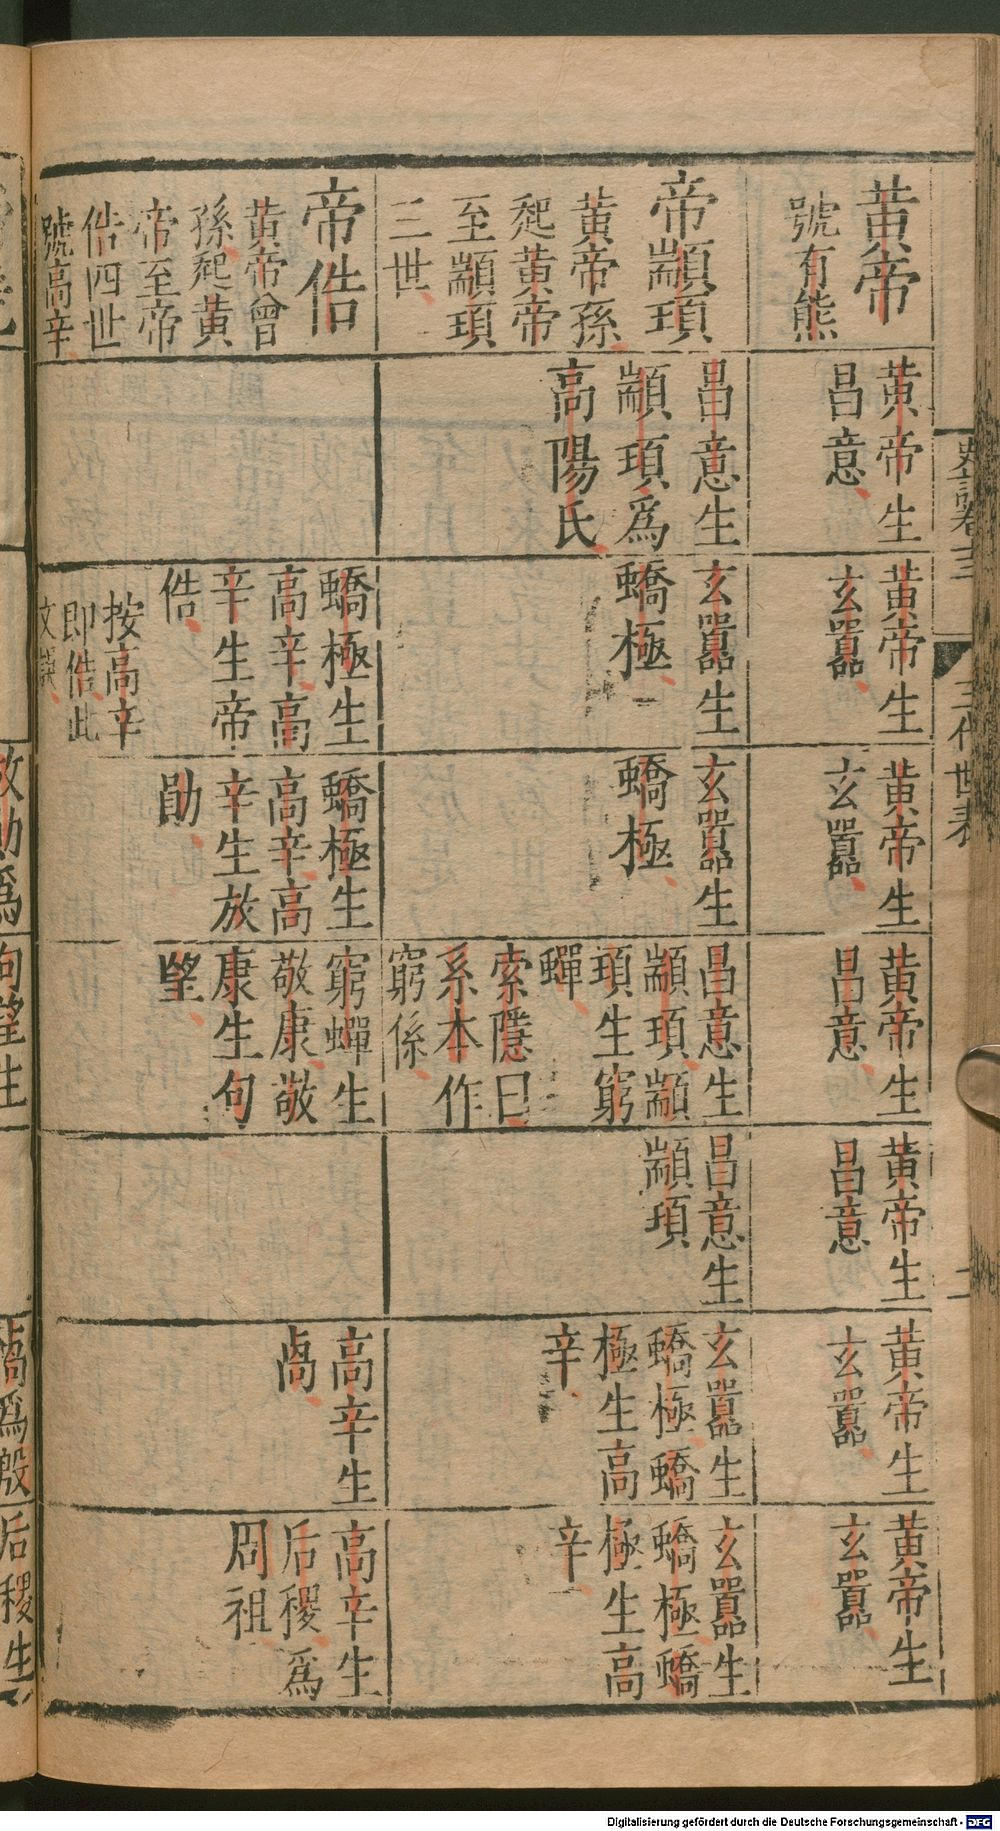 黃帝
號有熊
黃帝生
昌意
黃帝生
玄囂
黃帝生
玄囂
黃帝生
昌意
黃帝生
昌意
黃帝生
玄囂
黃帝生
玄囂
帝顓頊
黃帝孫
起黃帝
至顓頊
三世
昌意生
顓頊為
高陽氏
玄囂生
蟜極
玄囂生
蟜極
昌意生
顓頊顓
頊生窮
蟬
索隱曰
系本作
窮係
昌意生
顓頊
玄囂生
蟜極蟜
極生高
辛
玄囂生
蟜極蟜
極生高
辛
帝俈
黃帝曾
孫起黃
帝至帝
俈四世
號高辛
蟜極生
高辛高
辛生帝
俈
按高辛
即俈此
文誤
蟜極生
高辛高
辛生放
勛
窮蟬生
敬康敬
康生句
望
高辛生
卨
高辛生
后稷為
周祖
史記卷十三
三代世表
二
放勛為
句望生
卨為殷
后稷生
Digitalisierung gefördert durch die Deutsche Forschungsgemeinschaft - DFG